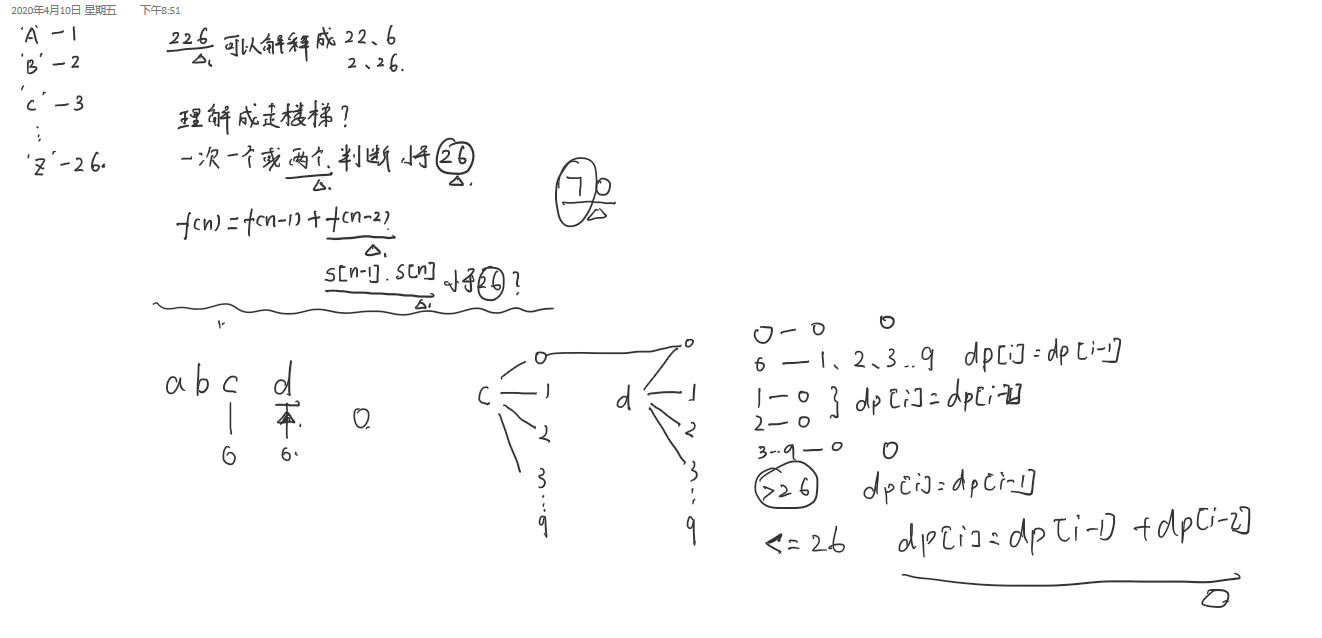 2020年4月10日 星期五 下午8:51
'A' - 1
'B' - 2
'C' - 3
⋮
'Z' - 26.
226 可以解释成 22、6
2、26.
理解成走楼梯?
一次一个或两个. 判断 小于 26
f(n) = f(n-1) + f(n-2)?
S[n-1]. S[n] 小于 26?
70
a b c d
0
6 6.
c 0 1 2 3 ⋮ 9
d 0 1 2 3 ⋮ 9
0 - 0 0
0 — 1、2、3...9 dp[i] = dp[i-1]
1 - 0 } dp[i] = dp[i-2]
2 - 0
3...9 — 0 0
>26 dp[i] = dp[i-1]
<= 26 dp[i] = dp[i-1] + dp[i-2]